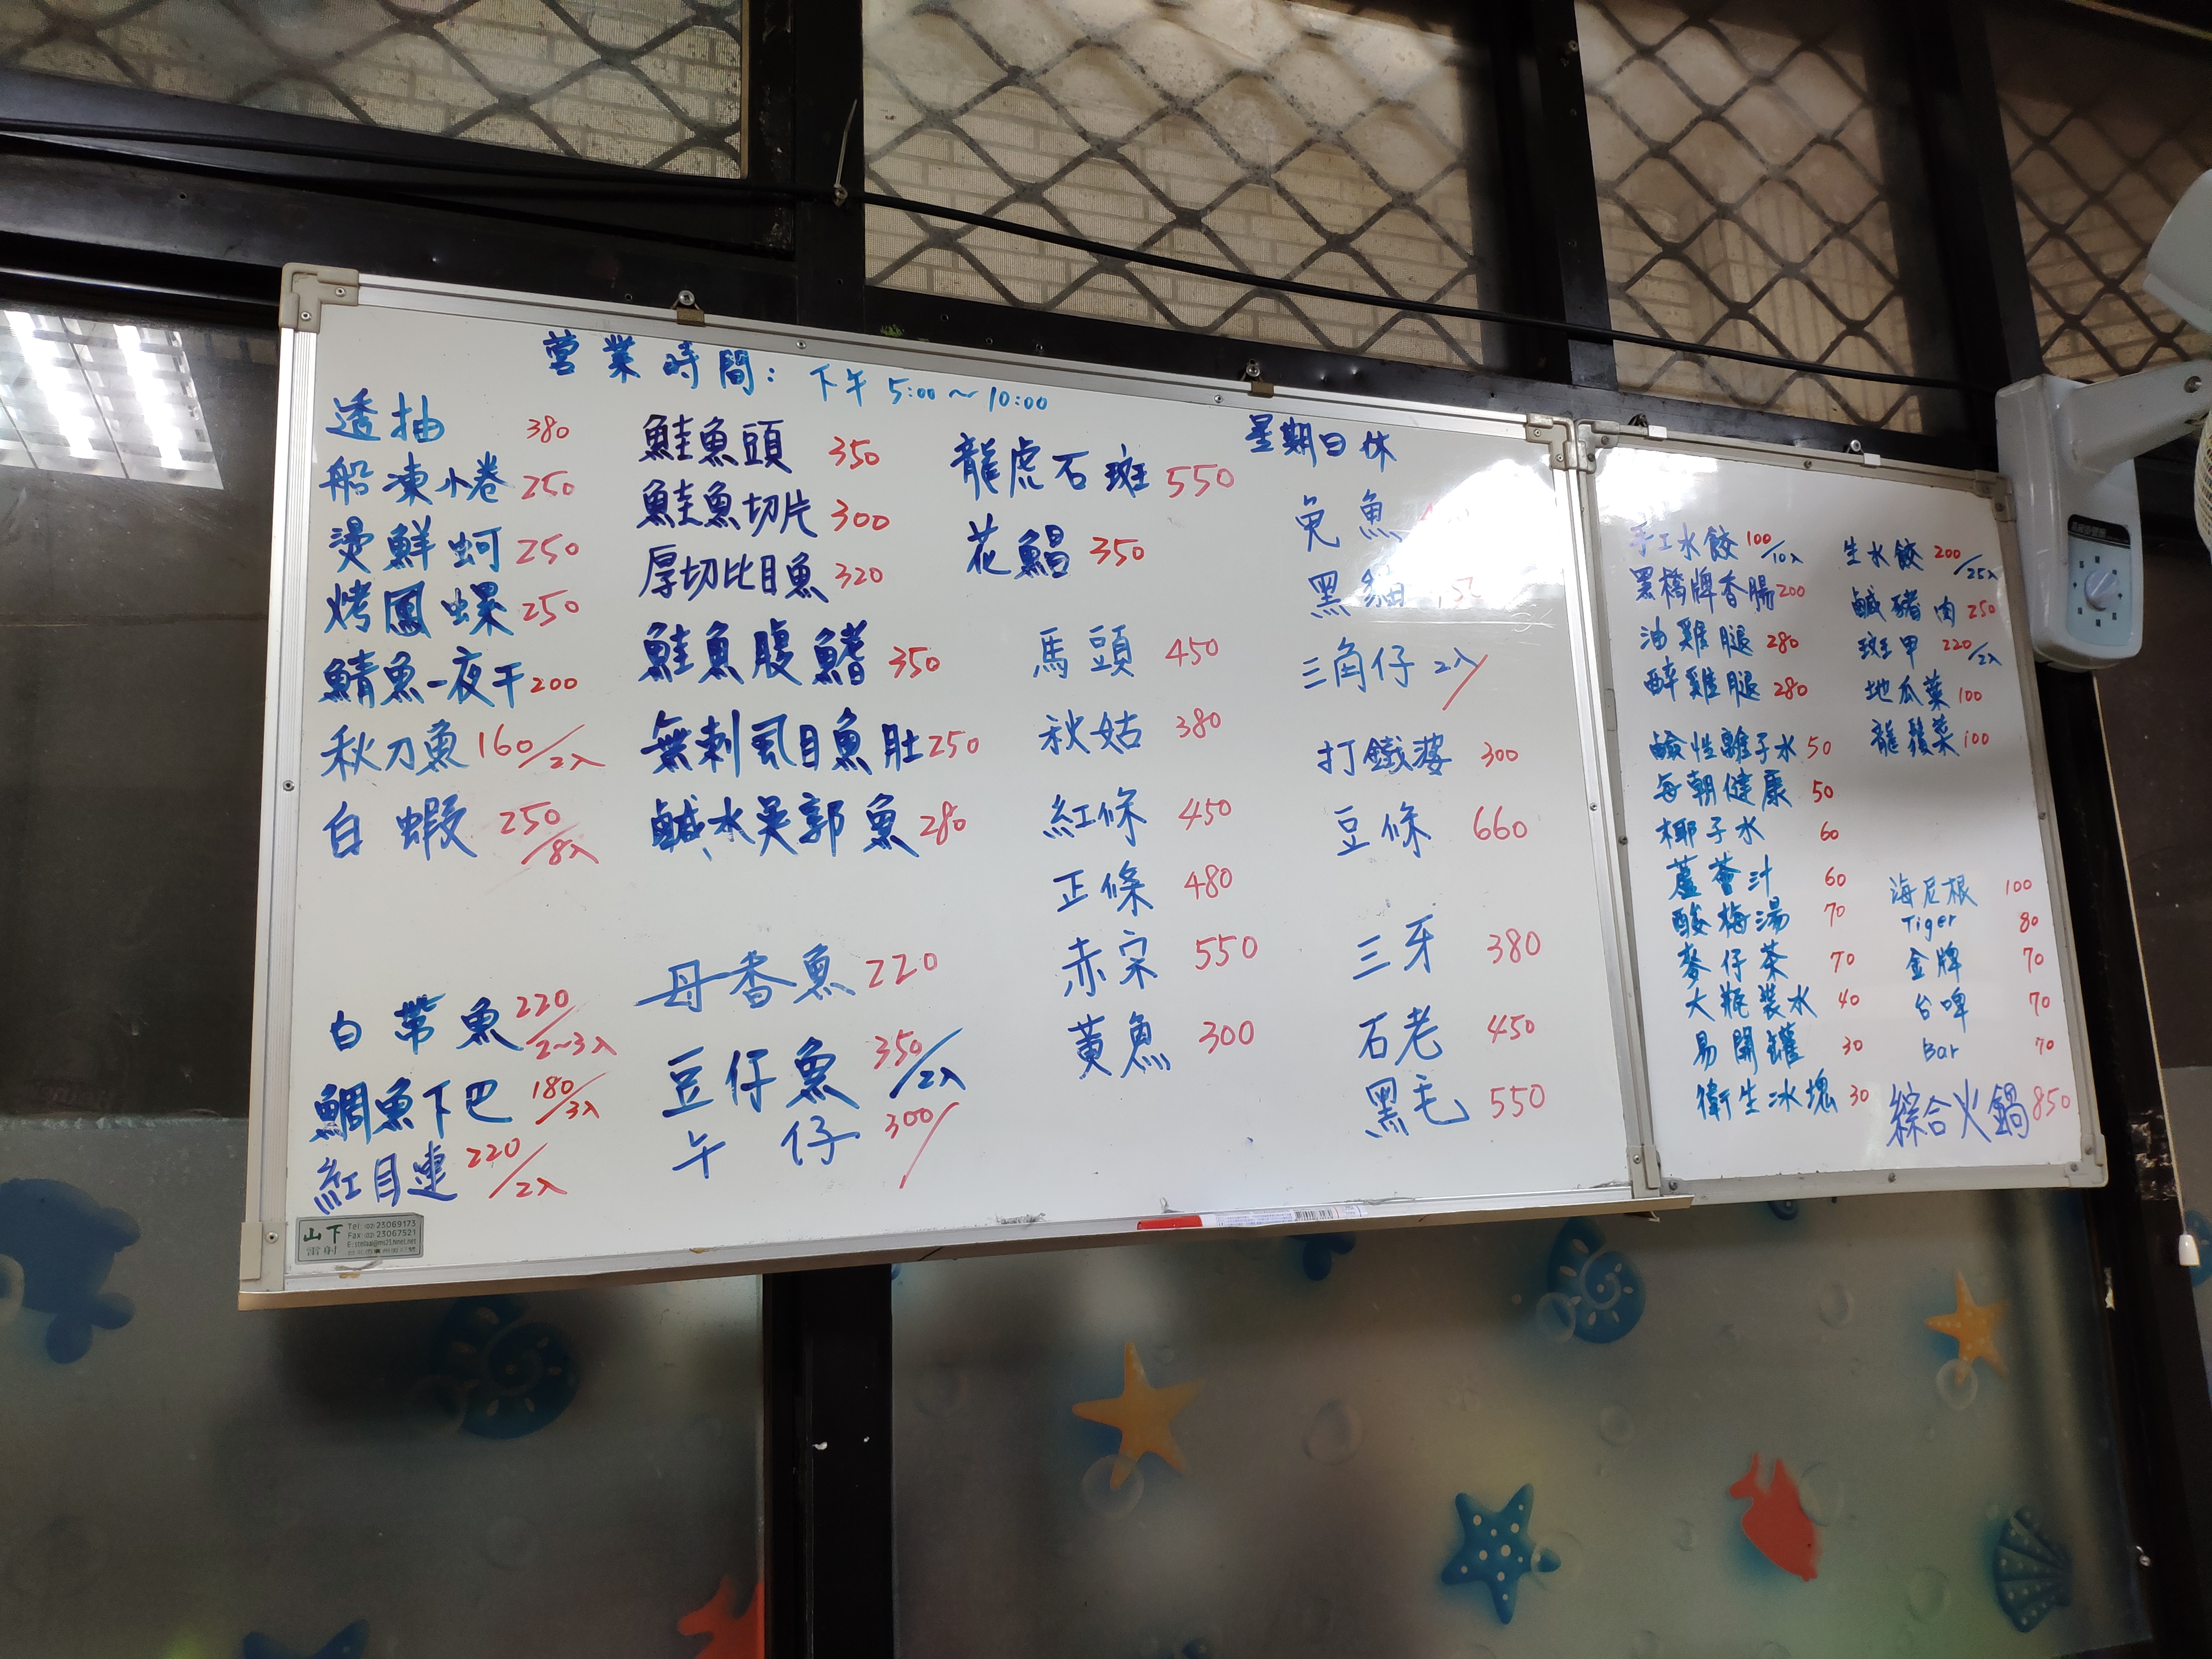 營業時間: 下午 5:00～10:00
星期日休
透抽 380
船凍小卷 250
燙鮮蚵 250
烤鳳螺 250
鯖魚一夜干 200
秋刀魚 160/2入
白蝦 250/8入
白帶魚 220/2~3入
鯛魚下巴 180/3入
紅目連 220/2入
鮭魚頭 350
鮭魚切片 300
厚切比目魚 320
鮭魚腹鰭 350
無刺虱目魚肚 250
鹹水吳郭魚 280
母香魚 220
豆仔魚 350/2入
午仔 300/
龍虎石斑 550
花鯧 350
馬頭 450
秋姑 380
紅條 450
正條 480
赤宗 550
黃魚 300
兔魚
黑貓
三角仔 2入/
打鐵婆 300
豆條 660
三牙 380
石老 450
黑毛 550
山下
雷射
Tel:(02)23069173
Fax:(02)23067521
手工水餃 100/10入
黑橋牌香腸 200
油雞腿 280
醉雞腿 280
鹼性離子水 50
每朝健康 50
椰子水 60
蘆薈汁 60
酸梅湯 70
麥仔茶 70
大瓶裝水 40
易開罐 30
衛生冰塊 30
生水餃 200/25入
鹹豬肉 250
斑甲 220/2入
地瓜葉 100
龍鬚菜 100
海尼根 100
Tiger 80
金牌 70
台啤 70
Bar 70
綜合火鍋 850